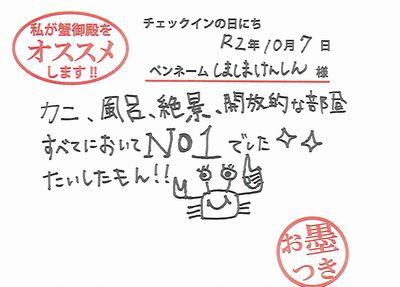 私が蟹御殿を
オススメ
します!!
チェックインの日にち
R2年10月7日
ペンネーム しましまけんしん 様
カニ、風呂、絶景、開放的な部屋
すべてにおいてNo1でした
たいしたもん!!
お墨
つき